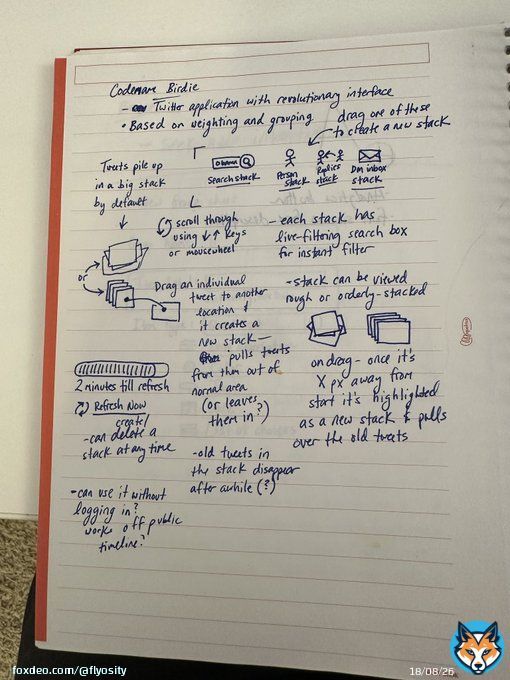 Codename Birdie
- Twitter application with revolutionary interface
• Based on weighting and grouping
drag one of these
to create a new stack
Tweets pile up
in a big stack
by default
Obama
Search stack
Person
stack
Replies
stack
DM inbox
stack
or
scroll through
using ↓↑ keys
or mousewheel
- each stack has
live-filtering search box
for instant filter
Drag an individual
tweet to another
location &
it creates a
new stack—
pulls tweets
from them out of
normal area
(or leaves
them in?)
- stack can be viewed
rough or orderly-stacked
on drag - once it's
X px away from
start it's highlighted
as a new stack & pulls
over the old tweets
2 minutes till refresh
Refresh Now
create/
- can delete a
stack at any time
- old tweets in
the stack disappear
after awhile (?)
- can use it without
logging in?
works off public
timeline?
foxdeo.com/@flyosity
18/08/26